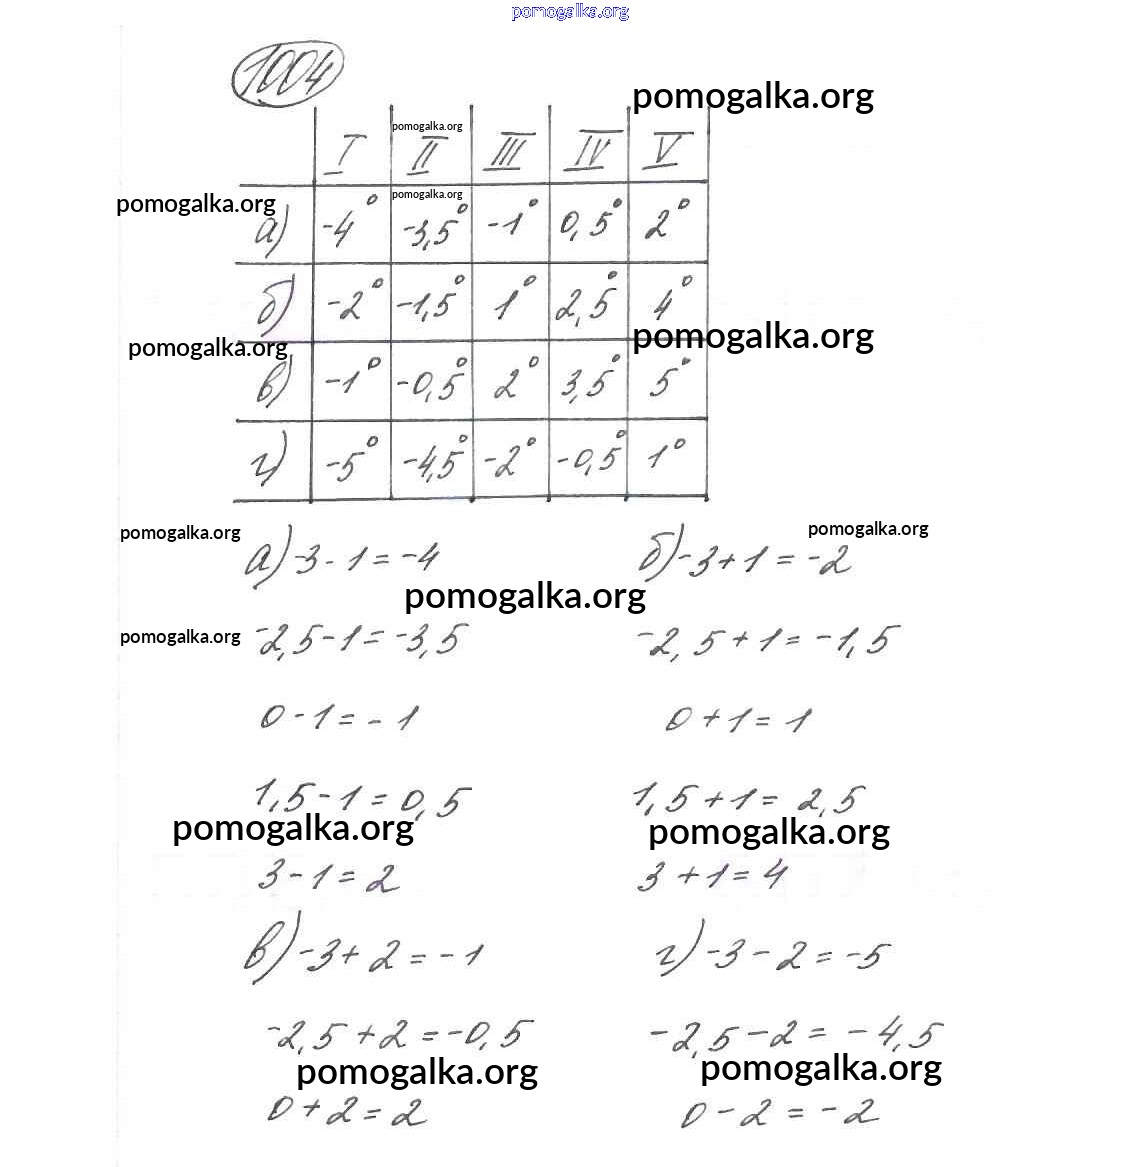 pomogalka.org
1004
pomogalka.org
I II III IV V
pomogalka.org
pomogalka.org
pomogalka.org
а) -4° -3,5° -1° 0,5° 2°
б) -2° -1,5° 1° 2,5° 4°
pomogalka.org
pomogalka.org
в) -1° -0,5° 2° 3,5° 5°
г) -5° -4,5° -2° -0,5° 1°
pomogalka.org
pomogalka.org
а) -3 - 1 = -4 б) -3 + 1 = -2
pomogalka.org
pomogalka.org
-2,5 - 1 = -3,5 -2,5 + 1 = -1,5
0 - 1 = - 1 0 + 1 = 1
1,5 - 1 = 0,5 1,5 + 1 = 2,5
pomogalka.org pomogalka.org
3 - 1 = 2 3 + 1 = 4
в) -3 + 2 = - 1 г) -3 - 2 = -5
-2,5 + 2 = -0,5 -2,5 - 2 = -4,5
pomogalka.org pomogalka.org
0 + 2 = 2 0 - 2 = -2